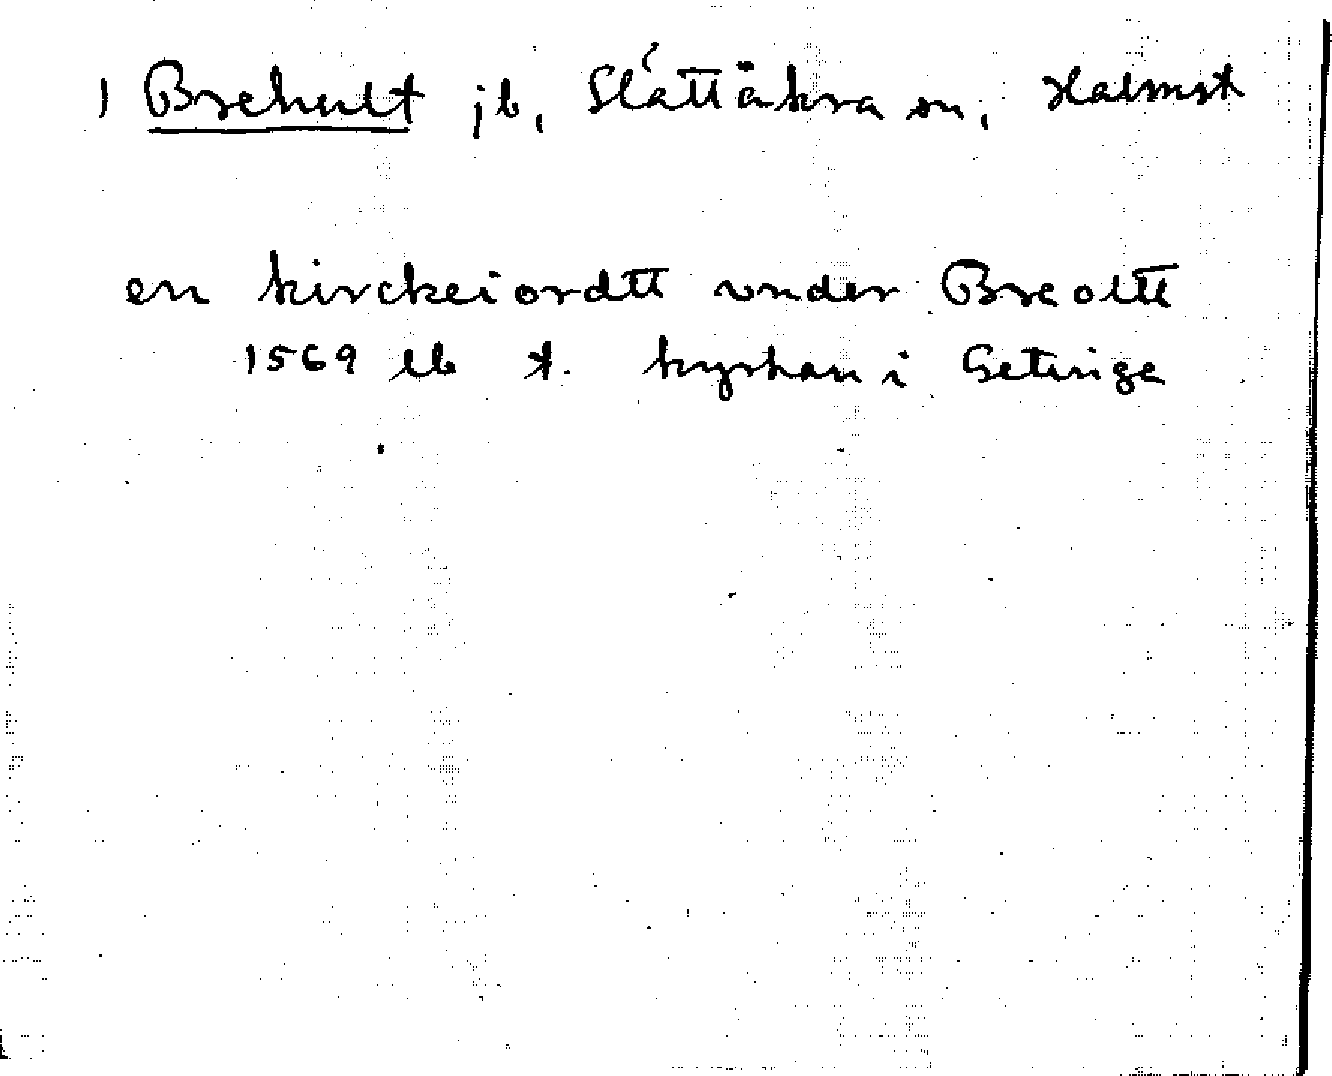 1 Brehult jb, Slättåkra sn, Halmst
en kirckeiordtt vnder Breoltt
1569 lb f. kyrkan i Getinge